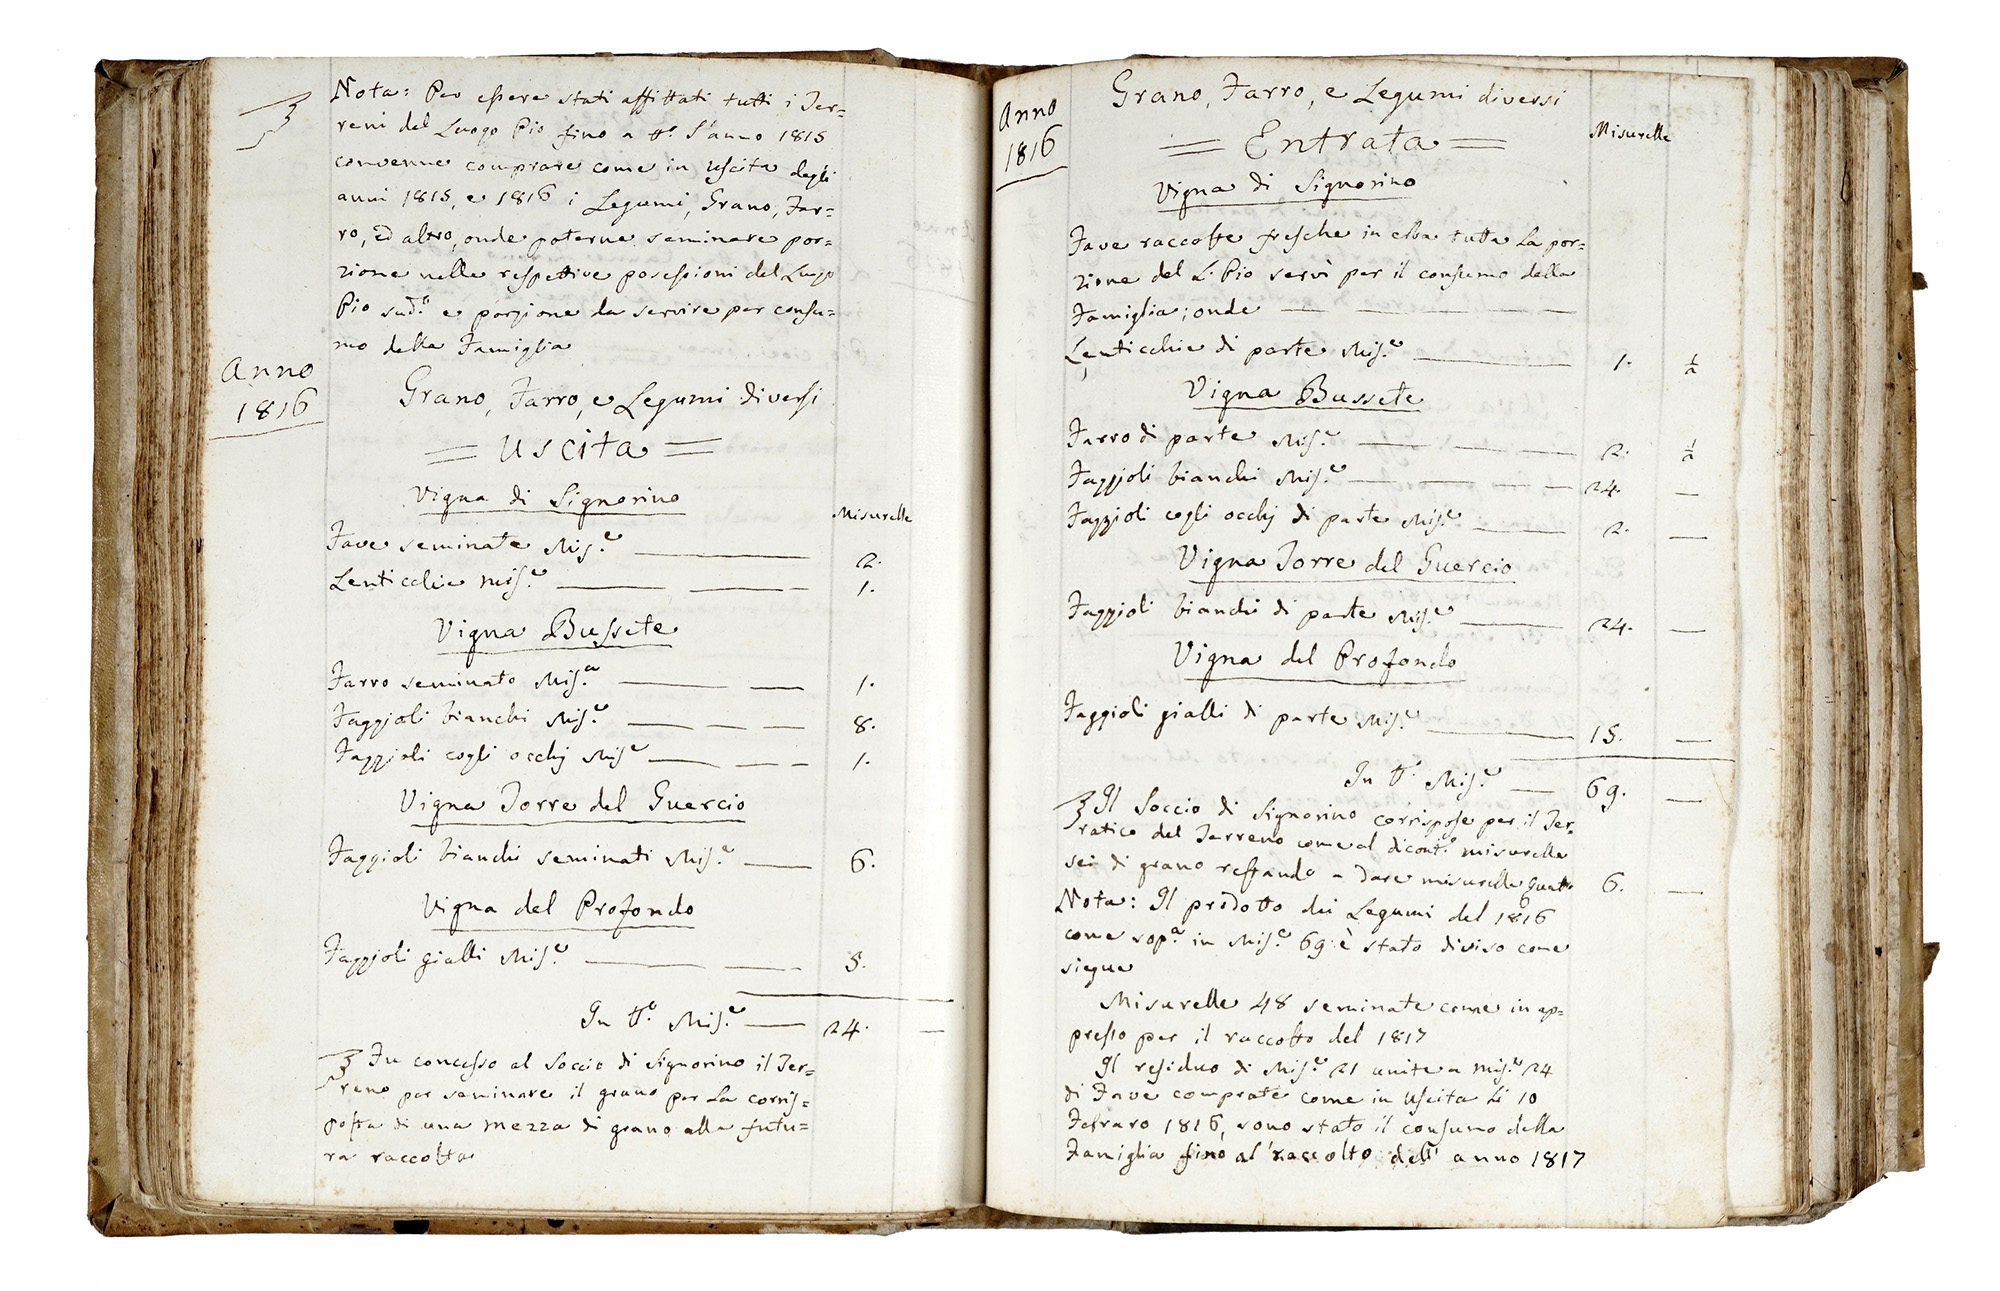 Nota: Per essere stati affittati tutti i Ter=
reni del Luogo Pio fino a tt.o l'anno 1815
convenne comprare come in uscita degli
anni 1815, e 1816 i Legumi, Grano, Far=
ro, ed altro, onde poterne seminare por=
zione nelle respettive posessioni del Luogo
Pio sud.o e porzione da servire per consu=
mo della Famiglia
Anno
1816
Grano, Farro, e Legumi diversi
= Uscita =
Vigna di Signorino
Misurelle
Fave seminate Mis.e 2.
Lenticchie mis.e 1.
Vigna Bussete
Farro seminato Mis.a 1.
Faggioli bianchi Mis.e 8.
Faggioli cogli occhj Mis.e 1.
Vigna Torre del Guercio
Faggioli bianchi seminati Mis.e 6.
Vigna del Profondo
Faggioli gialli Mis.e 5.
In tt.o Mis.e 24. —
Fu concesso al Soccio di Signorino il Ter=
reno per seminare il grano per la corris=
posta di una mezza di grano alla futu=
ra raccolta
Anno
1816
Grano, Farro, e Legumi diversi
= Entrata =
Misurelle
Vigna di Signorino
Fave raccolte fresche in erba tutta la por=
zione del L. Pio servì per il consumo della
Famiglia; onde — — —
Lenticchie di parte Mis.e 1. ½
Vigna Bussete
Farro di parte Mis.e 2. ½
Faggioli bianchi Mis.e 24. —
Faggioli cogli occhj di parte Mis.e 2. —
Vigna Torre del Guercio
Faggioli bianchi di parte Mis.e 24. —
Vigna del Profondo
Faggioli gialli di parte Mis.e 15. —
In tt.o Mis.e 69. —
Il Soccio di Signorino corrispose per il Ter=
ratico del Terreno come al dicont.o misurelle
sei di grano restando a dare misurelle quattro 6. —
Nota: Il prodotto dei Legumi del 1816
come sop.a in Mis.e 69 è stato diviso come
siegue
Misurelle 48 seminate come in ap=
presso per il raccolto del 1817
Il residuo di Mis.e 21 unite a mis.e 24
di Fave comprate come in uscita li 10
Febraro 1816, sono stato il consumo della
Famiglia fino al raccolto dell' anno 1817